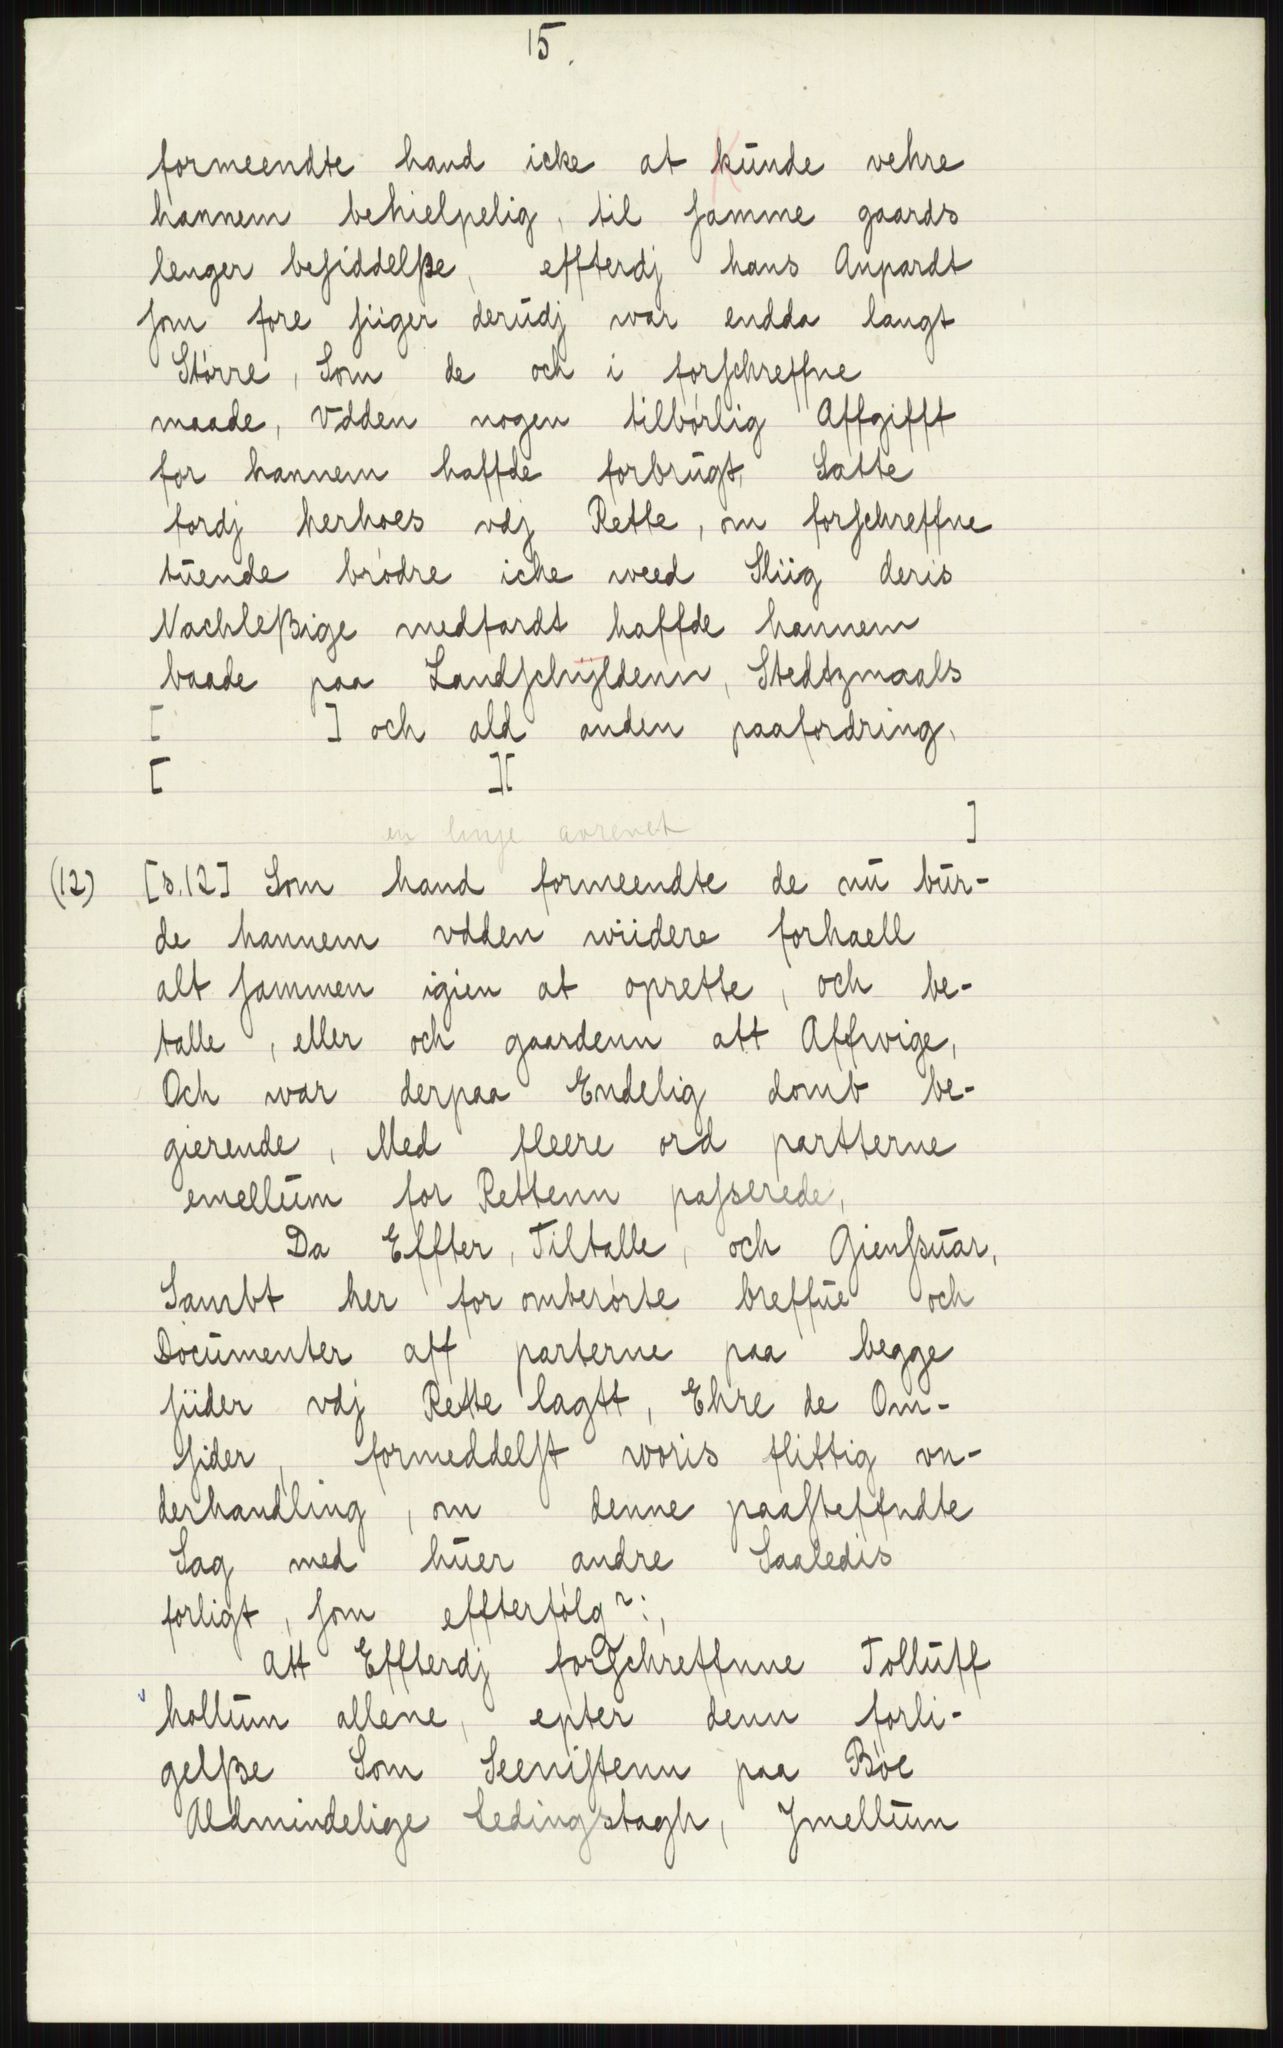 15.
formeendte hand icke at kunde vehre
hannem behielpelig, til samme gaards
lenger besiddelße, effterdj hans Anpardt
som fore siiger derudj war endda langt
Større, Som de och i forschreffne
maade, Vdden nogen tilbørlig Affgifft
for hannem haffde forbrugt, Satte
fordj herhoes vdj Rette, om forschreffne
tuende brødre icke weed Sliig deris
Nachleßige medfardt haffde hannem
baade paa Landschÿldenn, Stedtzmaals
[ ] och ald anden paafordring,
[ ][
en linje avrevet ]
(12) [s.12] Som hand formeendte de nu bur-
de hannem vdden wiidere forhaell
alt sammen igien at oprette, och be-
talle, eller och gaardenn att Affwige,
Och war derpaa Endelig domb be-
gierende, Med fleere ord partterne
emellum for Rettenn passerede,
Da Effter, Tiltalle, och Giensuar,
Sambt her for omberørte breffue och
Documenter aff parterne paa begge
siider vdj Rette lagtt, Ehre de Om-
sider, formeddelst woris flittig vn-
derhandling, om denne paasteffndte
Sag med huer andre Saaledis
forligt, som effterfølg~:,
Att Effterdj forschreffnne Tolluff
hollum allene, epter denn forli-
gelße Som Seenistenn paa Bøe
Aldmindelige Ledingstagh, Jmellum